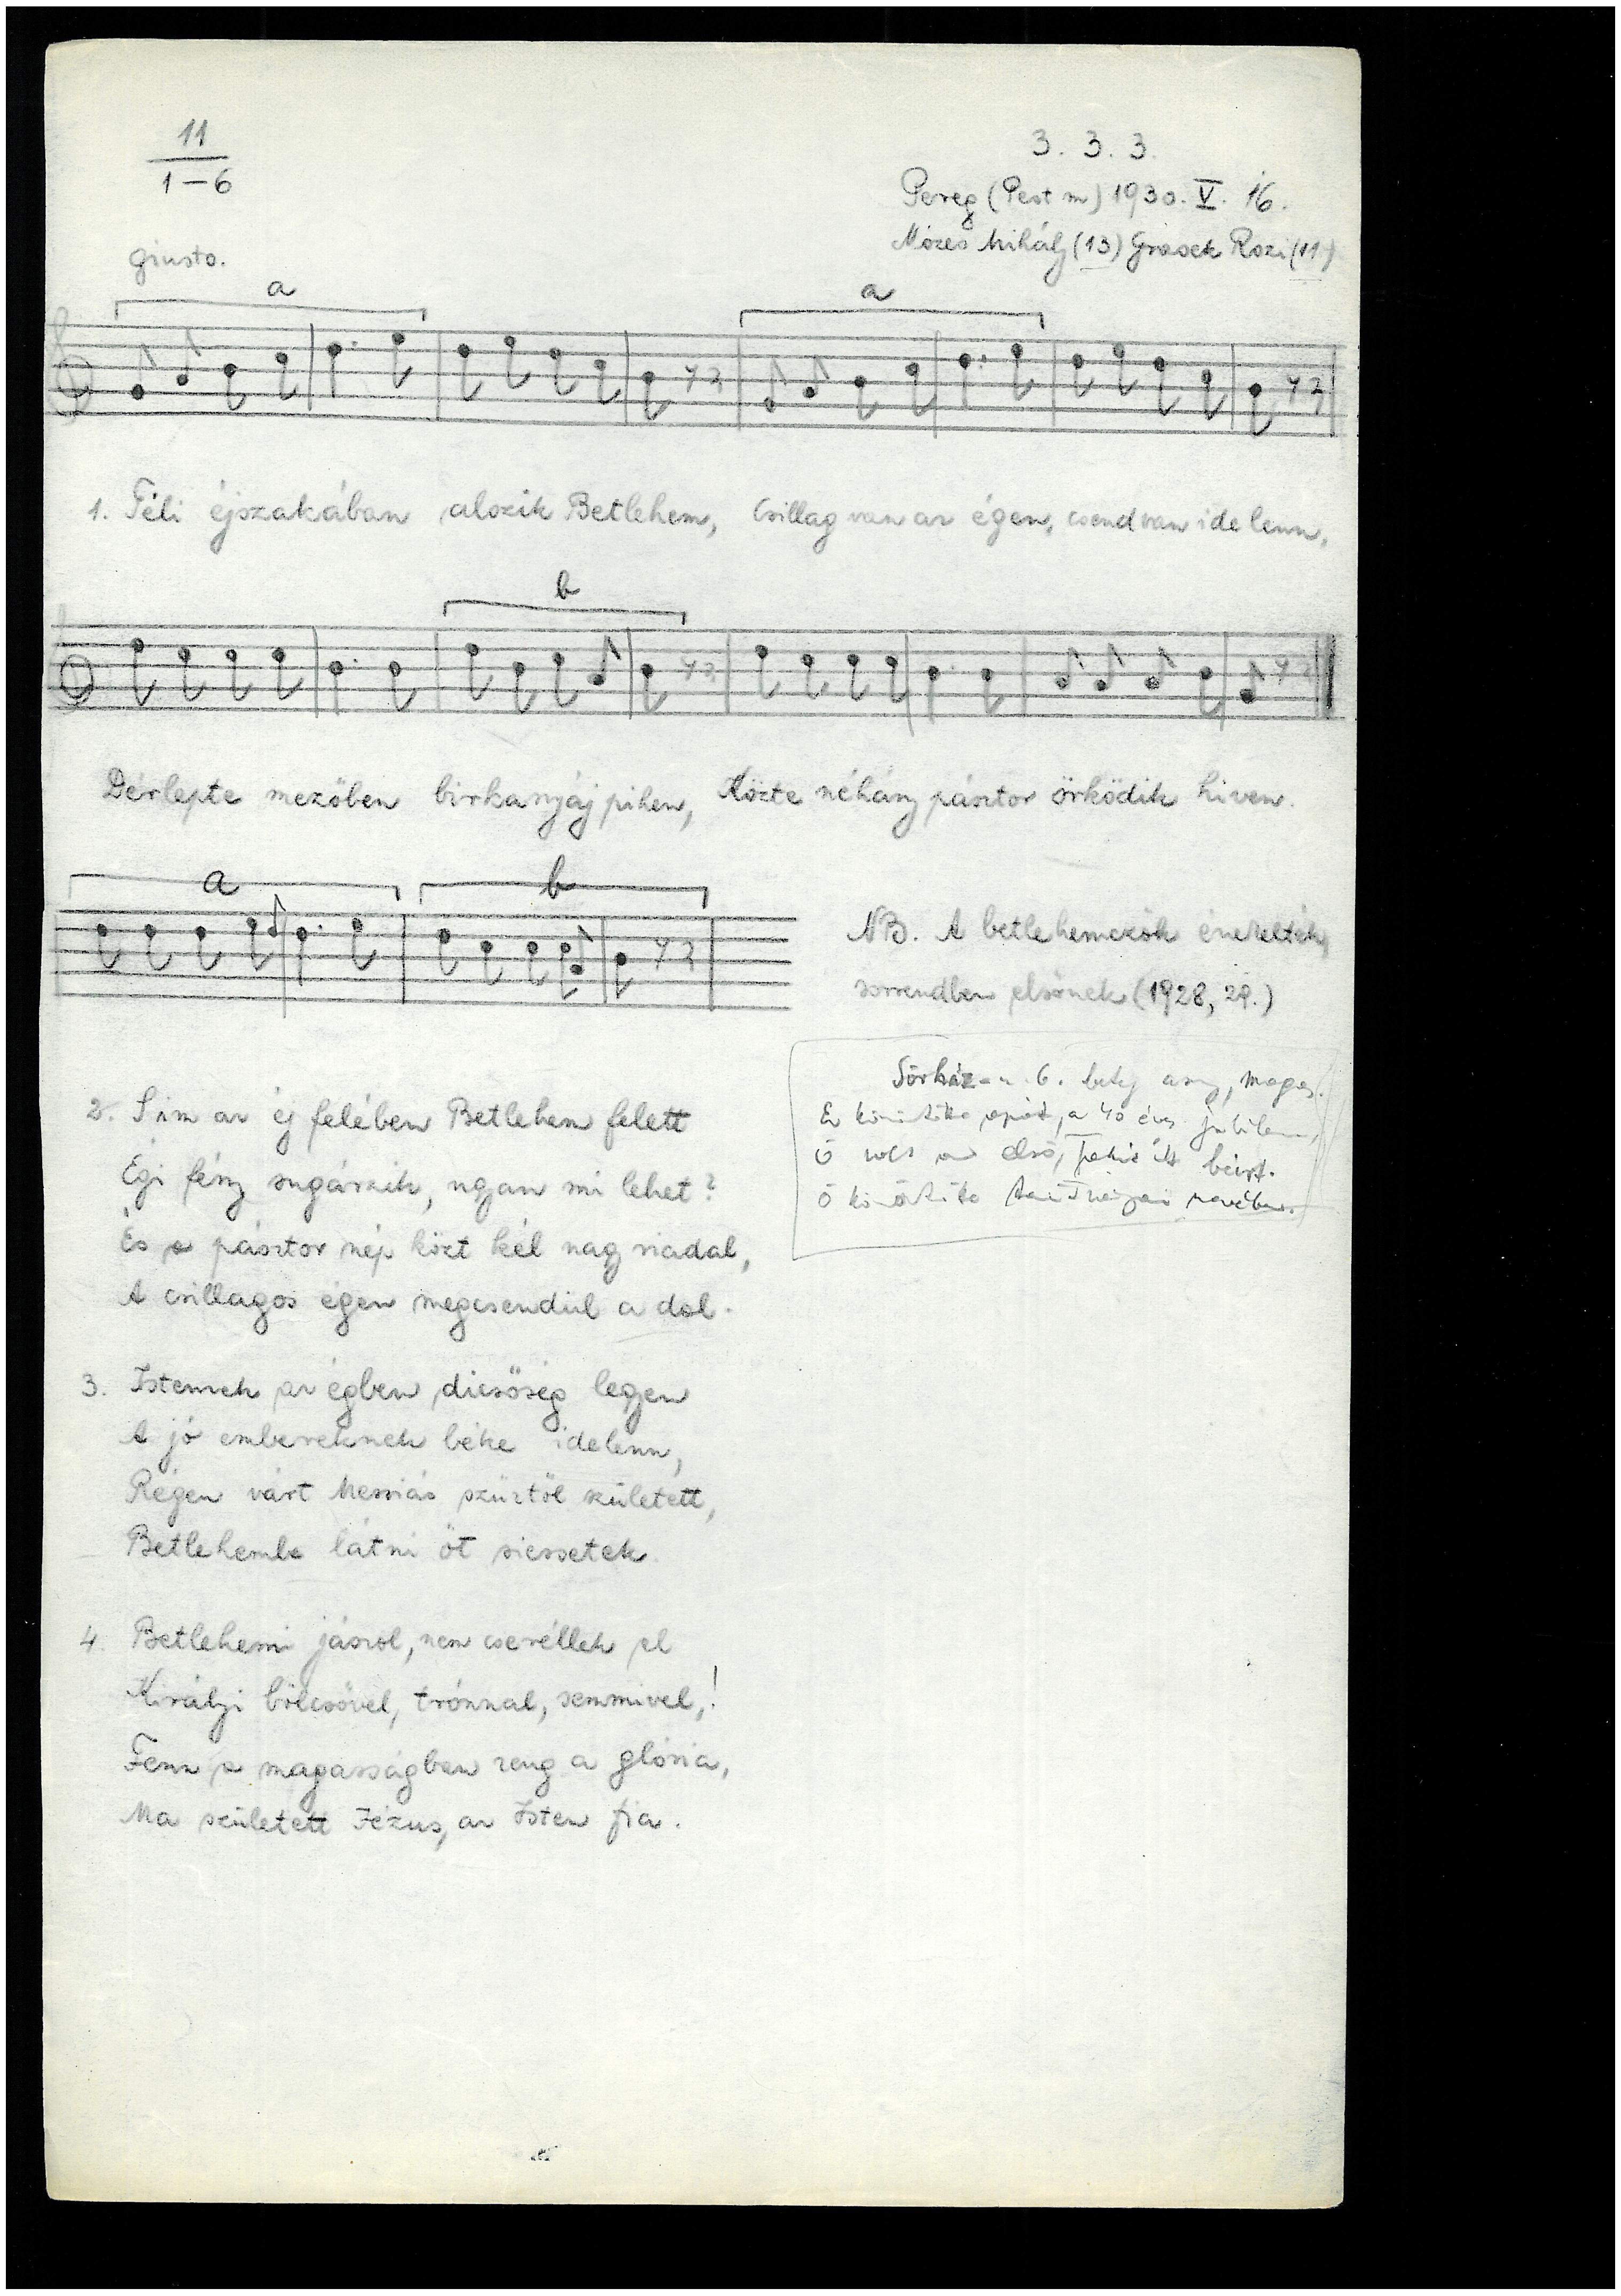 11
1–6
3. 3. 3.
Pereg (Pest m) 1930. V. 16.
Mózes Mihály (13) Rozi (11)
giusto.
a
a
1. Téli éjszakában alszik Betlehem, Csillag van az égen, csend van idelenn.
b
Dérlepte mezőben birkanyáj pihen, Közte néhány pásztor örködik hiven.
a
b
NB. A betlehemezők énekelték,
sorrendben elsőnek (1928, 29.)
Sörház-u. 6.
a 40 éves
Ő volt az első,
Ő
2. S im az éj felében Betlehem felett
Égi fény sugárzik, ugyan mi lehet?
És a pásztor nép közt kél nagy riadal,
A csillagos égen megcsendül a dal.
3. Istennek az égben dicsőség legyen
A jó embereknek béke idelenn,
Régen várt Messiás szüztől született,
Betlehembe látni őt siessetek.
4. Betlehemi jászol, nem cseréllek el
Királyi bölcsővel, trónnal, semmivel,!
Fenn a magasságban zeng a glória,
Ma született Jézus, az Isten fia.